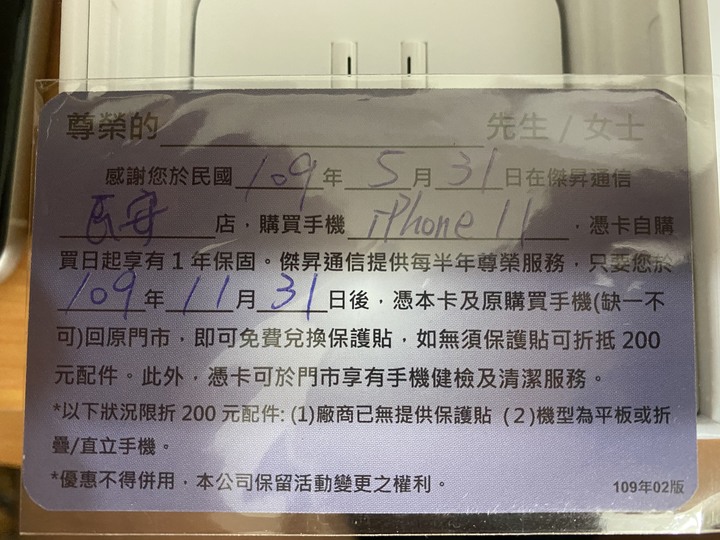 尊榮的 先生/女士
感謝您於民國109年5月31日在傑昇通信
民安店,購買手機iPhone 11,憑卡自購
買日起享有1年保固。傑昇通信提供每半年尊榮服務,只要您於
109年11月31日後,憑本卡及原購買手機(缺一不
可)回原門市,即可免費兌換保護貼,如無須保護貼可折抵200
元配件。此外,憑卡可於門市享有手機健檢及清潔服務。
*以下狀況限折200元配件: (1)廠商已無提供保護貼 (2)機型為平板或折
疊/直立手機。
*優惠不得併用,本公司保留活動變更之權利。
109年02版